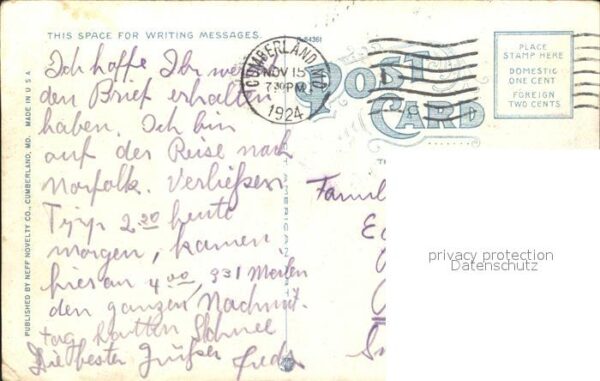 THIS SPACE FOR WRITING MESSAGES.
Ich hoffe Ihr
den Brief erhalten
haben. Ich bin
auf der Reise nach
Norfolk. Verließen
2.20 heute
morgen, kamen
hier an 4.00, 331 Meilen
den ganzen Nachmit
tag hatten Schnee
Die besten Grüße
CUMBERLAND, MD.
NOV 15
7 30 PM
1924
POST
CARD
PLACE
STAMP HERE
DOMESTIC
ONE CENT
FOREIGN
TWO CENTS
Famil
privacy protection
Datenschutz
PUBLISHED BY NEFF NOVELTY CO., CUMBERLAND, MD. MADE IN U.S.A.